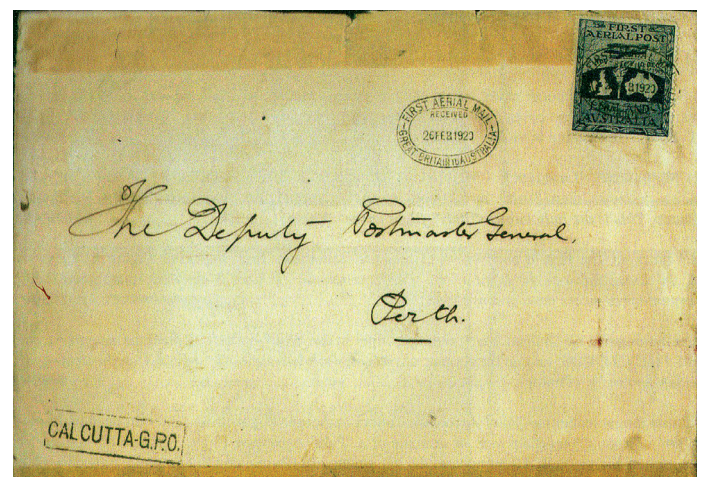 FIRST
AERIAL POST
ENGLAND
AUSTRALIA
FIRST AERIAL MAIL
RECEIVED
26 FEB 1920
GREAT BRITAIN TO AUSTRALIA
The Deputy Postmaster General,
Perth.
CALCUTTA-G.P.O.